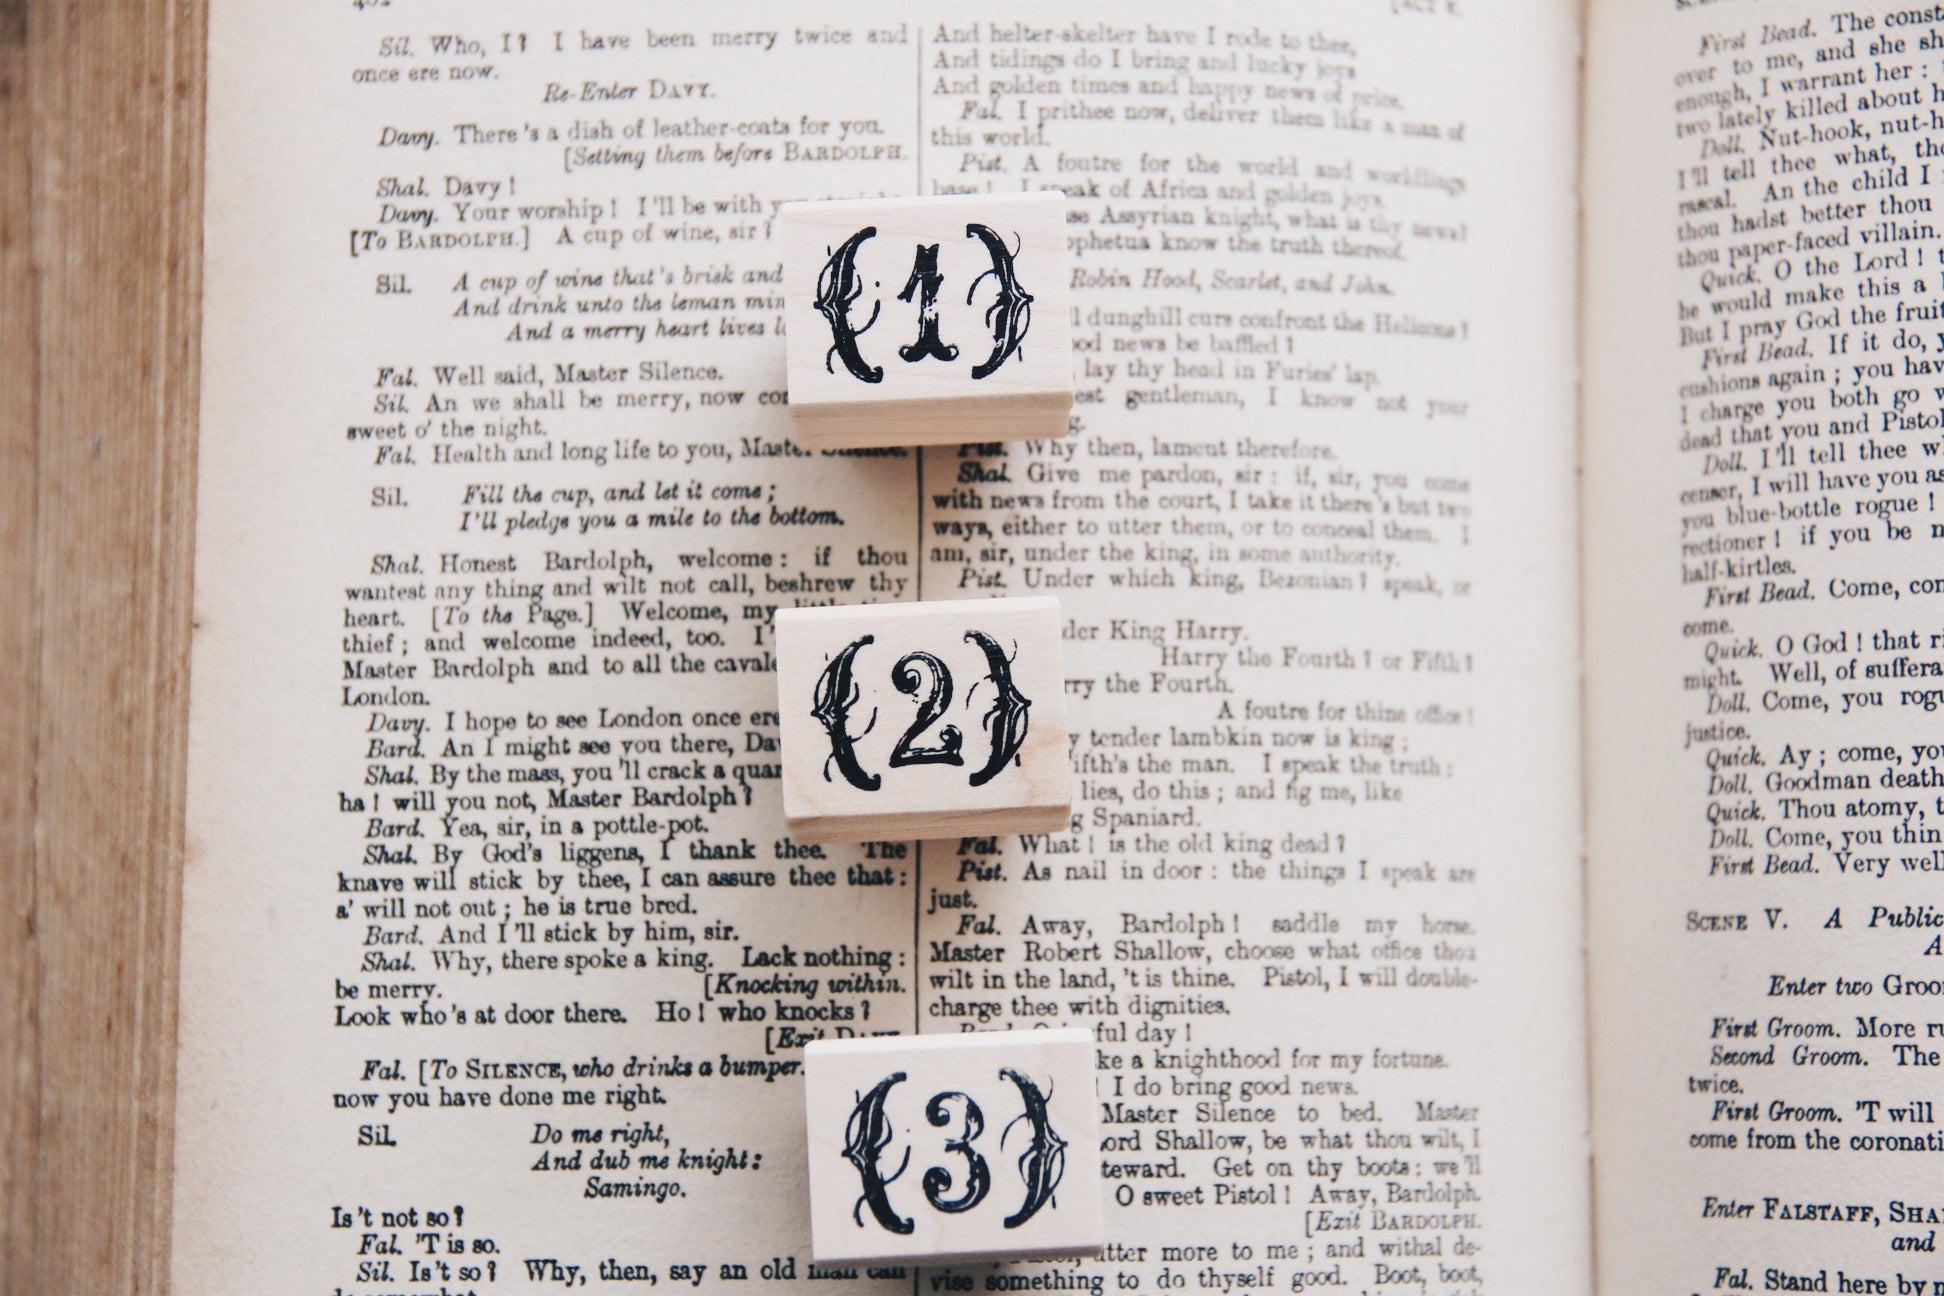 402
Sil. Who, I? I have been merry twice and
once ere now.
Re-Enter DAVY.
Davy. There's a dish of leather-coats for you.
[Setting them before BARDOLPH.
Shal. Davy!
Davy. Your worship! I'll be with
[To BARDOLPH.] A cup of wine, sir?
Sil. A cup of wine that's brisk and
And drink unto the leman
And a merry heart lives
Fal. Well said, Master Silence.
Sil. An we shall be merry, now
sweet o' the night.
Fal. Health and long life to you, Master Silence.
Sil. Fill the cup, and let it come;
I'll pledge you a mile to the bottom.
Shal. Honest Bardolph, welcome: if thou
wantest any thing and wilt not call, beshrew thy
heart. [To the Page.] Welcome, my
thief; and welcome indeed, too.
Master Bardolph and to all the
London.
Davy. I hope to see London once ere
Bard. An I might see you there,
Shal. By the mass, you 'll crack a
ha! will you not, Master Bardolph?
Bard. Yea, sir, in a pottle-pot.
Shal. By God's liggens, I thank thee. The
knave will stick by thee, I can assure thee that:
a' will not out; he is true bred.
Bard. And I 'll stick by him, sir.
Shal. Why, there spoke a king. Lack nothing:
be merry. [Knocking within.
Look who's at door there. Ho! who knocks?
[Exit DAVY.
Fal. [To SILENCE, who drinks a bumper.
now you have done me right.
Sil. Do me right,
And dub me knight:
Samingo.
Is 't not so?
Fal. 'T is so.
Sil. Is't so? Why, then, say an old man can
{1}
{2}
{3}
[ACT V.
And helter-skelter have I rode to thee,
And tidings do I bring and lucky joys
And golden times and happy news of price.
Fal. I prithee now, deliver them like a man of
this world.
Pist. A foutre for the world and worldlings
base! I speak of Africa and golden joys.
Assyrian knight, what is thy news?
know the truth thereof.
Robin Hood, Scarlet, and John.
dunghill curs confront the Helicons?
news be baffled?
lay thy head in Furies' lap.
gentleman, I know not your
Pist. Why then, lament therefore.
Shal. Give me pardon, sir: if, sir, you come
with news from the court, I take it there's but two
ways, either to utter them, or to conceal them. I
am, sir, under the king, in some authority.
Pist. Under which king, Bezonian? speak, or
King Harry.
Harry the Fourth? or Fifth?
the Fourth.
A foutre for thine office!
tender lambkin now is king;
the man. I speak the truth:
lies, do this; and fig me, like
Spaniard.
Fal. What! is the old king dead?
Pist. As nail in door: the things I speak are
just.
Fal. Away, Bardolph! saddle my horse.
Master Robert Shallow, choose what office thou
wilt in the land, 't is thine. Pistol, I will double-
charge thee with dignities.
day!
a knighthood for my fortune.
I do bring good news.
Master Silence to bed. Master
Shallow, be what thou wilt, I
Get on thy boots: we 'll
O sweet Pistol! Away, Bardolph.
[Exit BARDOLPH.
utter more to me; and withal de-
vise something to do thyself good. Boot, boot,
First Bead. The
over to me, and she
enough, I warrant her:
two lately killed about
Doll. Nut-hook,
I 'll tell thee what,
rascal. An the child I
thou hadst better thou
thou paper-faced villain.
Quick. O the Lord!
he would make this a
But I pray God the
First Bead. If it do,
cushions again; you
I charge you both go
dead that you and
Doll. I 'll tell thee
censer, I will have you
you blue-bottle rogue!
rectioner! if you be
half-kirtles.
First Bead. Come,
come.
Quick. O God! that
might. Well, of
Doll. Come, you
justice.
Quick. Ay; come,
Doll. Goodman death
Quick. Thou atomy,
Doll. Come, you
First Bead. Very
SCENE V. A
Enter two
First Groom. More
Second Groom. The
twice.
First Groom. 'T will
come from the
Enter FALSTAFF,
and
Fal. Stand here by